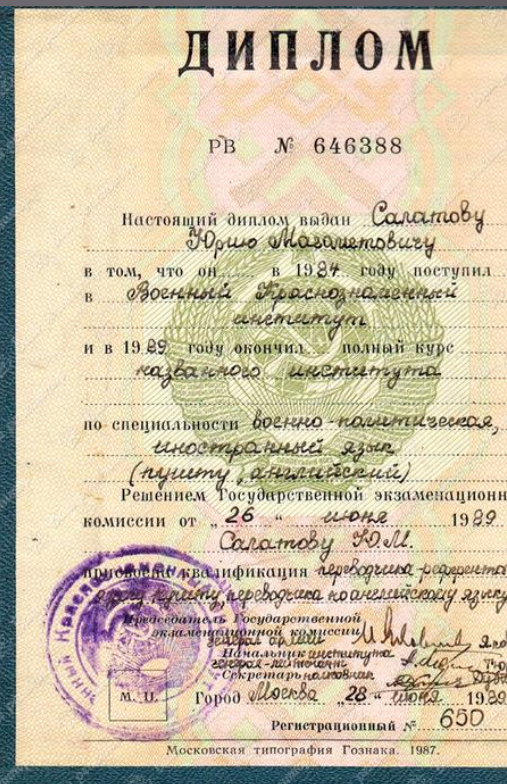 ДИПЛОМ
РВ № 646388
Настоящий диплом выдан Салатову
Юрию Магаметовичу
в том, что он в 1984 году поступил
в Военный Краснознаменный
институт
и в 1989 году окончил полный курс
названного института
по специальности военно-политическая,
иностранный язык
(пушту, английский)
Решением Государственной экзаменационн
комиссии от „26“ июня 1989
Салатову Ю.М.
присвоена квалификация переводчика-референта
пушту, переводчика по английскому языку
Председатель Государственной
экзаменационной комиссии
генерал армии
Начальник института
генерал-лейтенант
Секретарь полковник
М. П. Город Москва „28“ июня 1989
Регистрационный № 650
Московская типография Гознака. 1987.